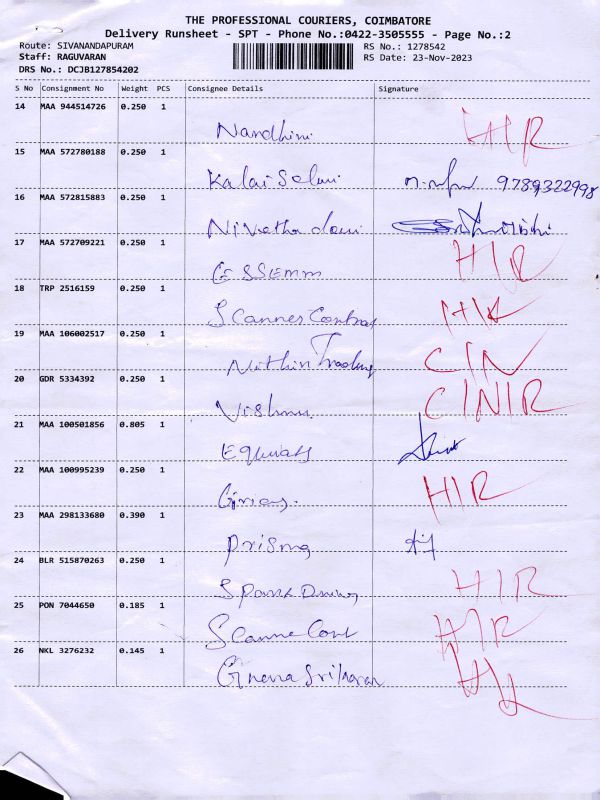 THE PROFESSIONAL COURIERS, COIMBATORE
Delivery Runsheet - SPT - Phone No.:0422-3505555 - Page No.:2
Route: SIVANANDAPURAM RS No.: 1278542
Staff: RAGUVARAN RS Date: 23-Nov-2023
DRS No.: DCJB127854202
S No Consignment No Weight PCS Consignee Details Signature
14 MAA 944514726 0.250 1
Nandhini H/R
15 MAA 572780188 0.250 1
Kalai Selvi 9789322998
16 MAA 572815883 0.250 1
Nivetha devi
17 MAA 572709221 0.250 1
GESSEMM H/R
18 TRP 2516159 0.250 1
Scannes Control H/R
19 MAA 106002517 0.250 1
Nithin Trading C/N
20 GDR 5334392 0.250 1
Vishnu C/N/R
21 MAA 100501856 0.805 1
22 MAA 100995239 0.250 1
H/R
23 MAA 298133680 0.390 1
Prisma
24 BLR 515870263 0.250 1
H/R
25 PON 7044650 0.185 1
Scanne Cont H/R
26 NKL 3276232 0.145 1